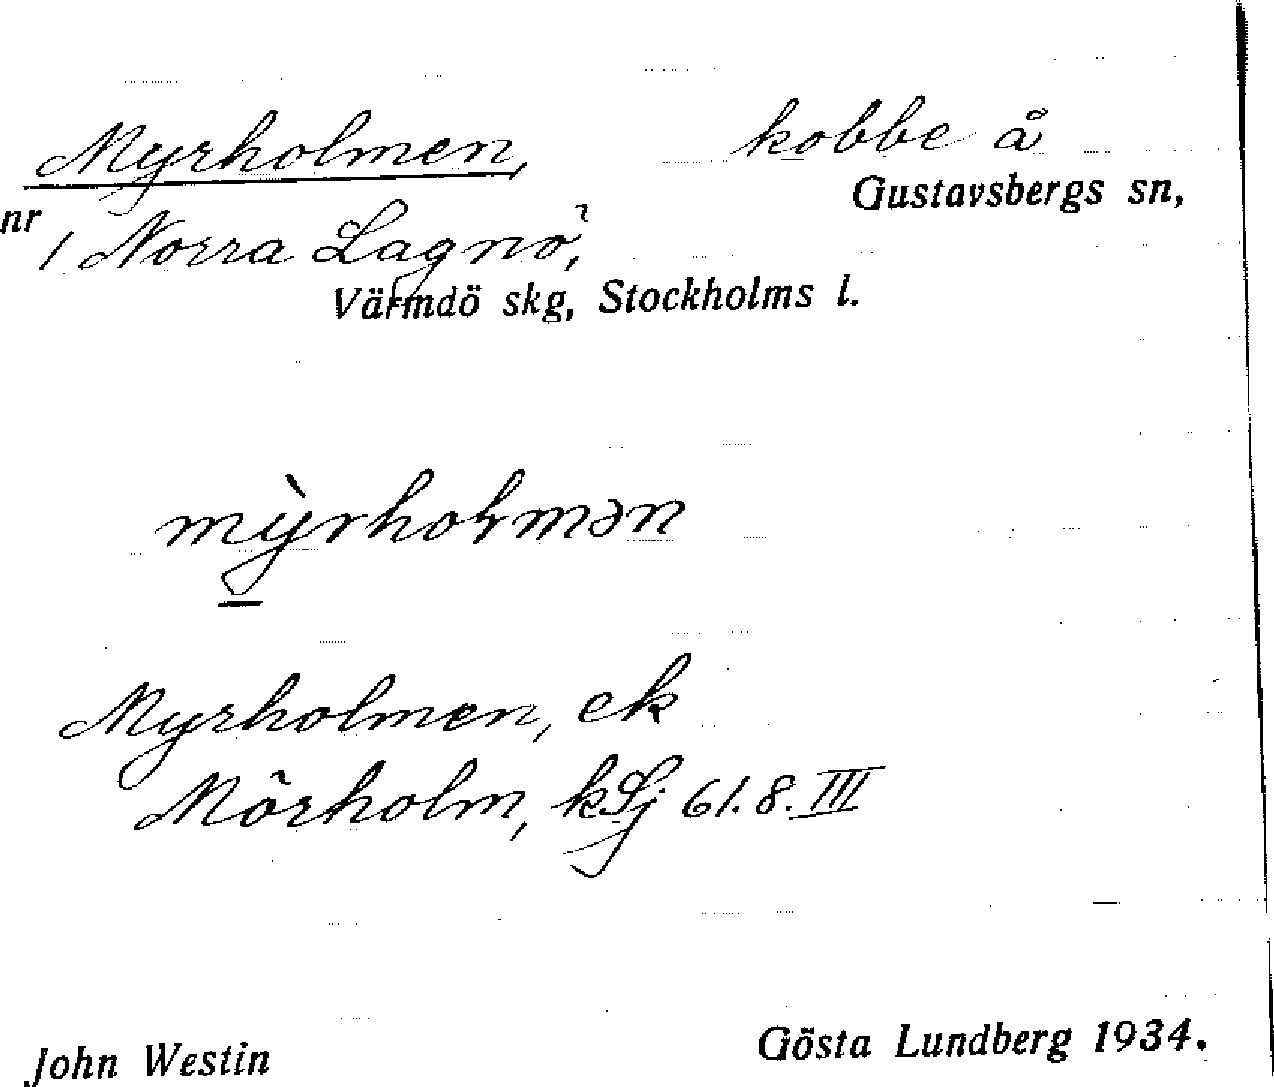 Myrholmen, kobbe å
Gustavsbergs sn,
nr 1 Norra Lagnö,
Värmdö skg, Stockholms l.
mỳrhoɫmən
Myrholmen, ek
Mörholm, kSj 61.8.III
John Westin Gösta Lundberg 1934.